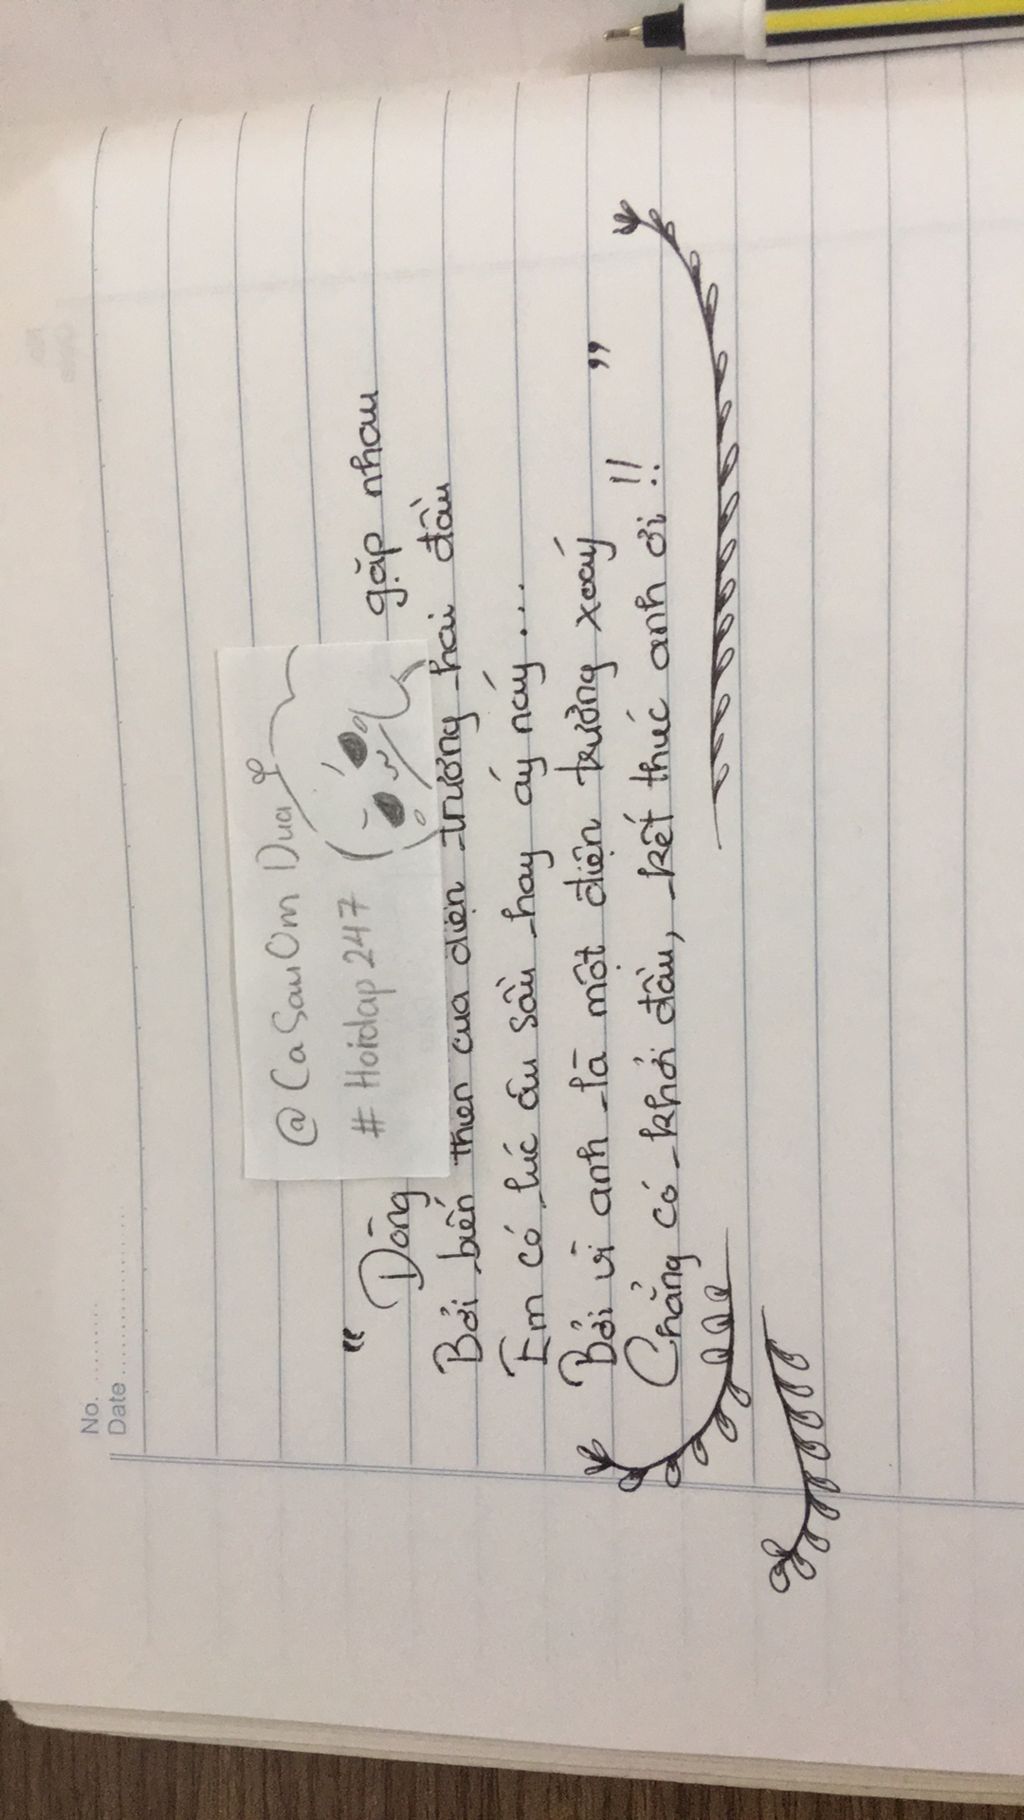 No.
Date
@CaSauOmDua
#Hoidap247
" Dòng gặp nhau
Bởi biến thiên của điện trường hai đầu
Em có lúc âu sầu hay áy náy...
Bởi vì anh là một điện trường xoáy "
Chẳng có khởi đầu, kết thúc anh ơi !!